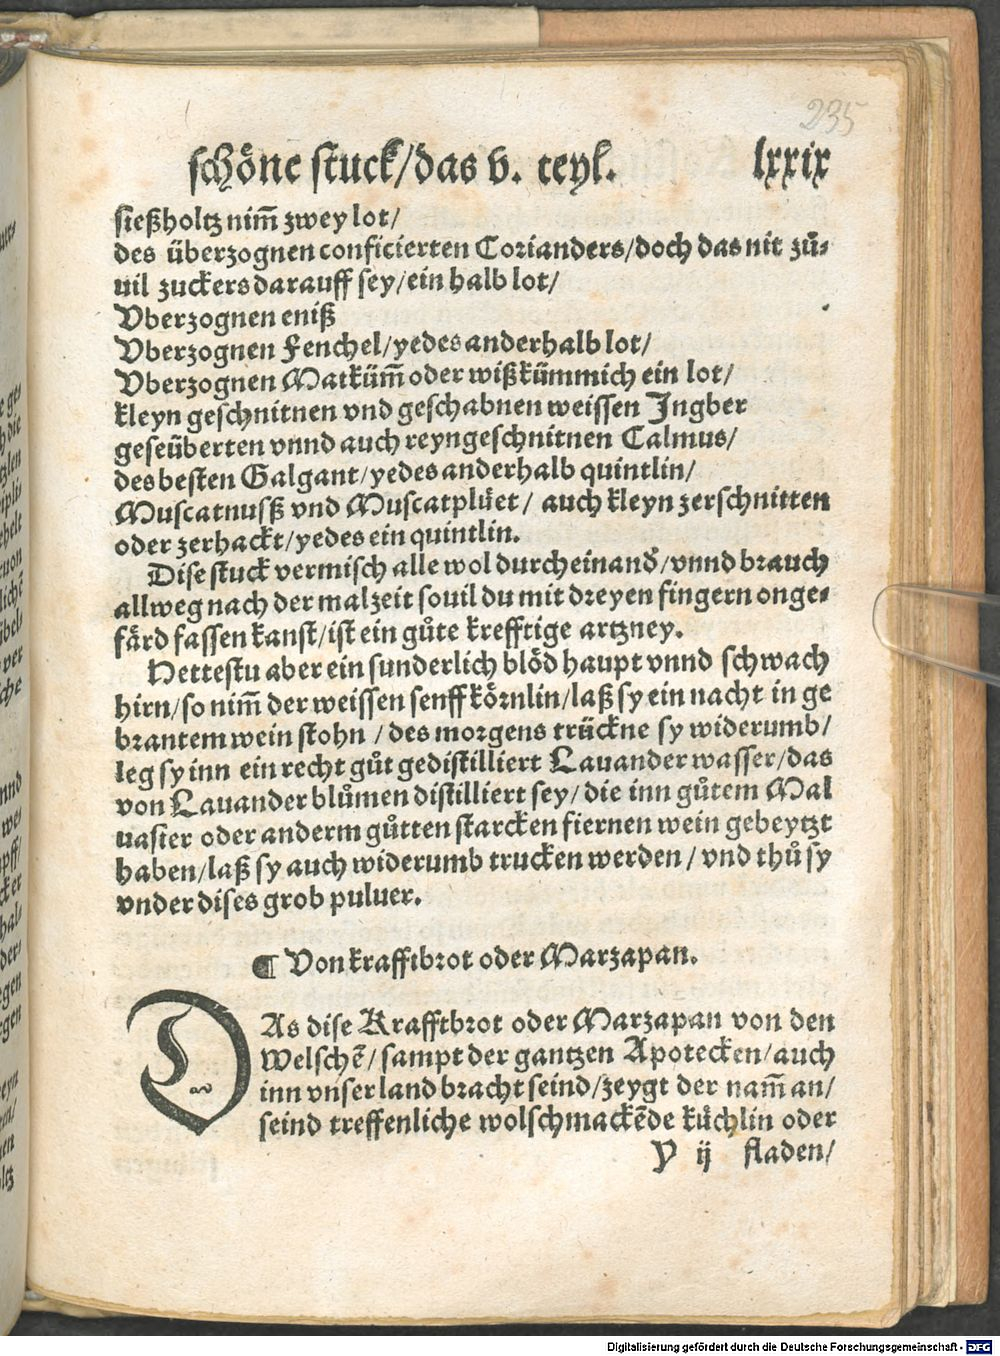 235
schöne stuck/das v. teyl. lxxix
sießholtz nim̃ zwey lot/
des überzognen conficierten Corianders/doch das nit zů-
uil zuckers darauff sey/ein halb lot/
Vberzognen eniß
Vberzognen Fenchel/yedes anderhalb lot/
Vberzognen Matküm̃ oder wißkümmich ein lot/
kleyn geschnitnen vnd geschabnen weissen Jngber
geseüberten vnnd auch reyngeschnitnen Calmus/
des besten Galgant/yedes anderhalb quintlin/
Muscatnusß vnd Muscatplüet/ auch kleyn zerschnitten
oder zerhackt/yedes ein quintlin.
Dise stuck vermisch alle wol durcheinand̕/vnnd brauch
allweg nach der malzeit souil du mit dreyen fingern onge-
färd fassen kanst/ist ein gůte krefftige artzney.
Hettestu aber ein sunderlich blöd haupt vnnd schwach
hirn/so nim̃ der weissen senffkörnlin/laß sy ein nacht in ge
brantem wein stohn /des morgens trückne sy widerumb/
leg sy inn ein recht gůt gedistilliert Lauander wasser/das
von Lauander blůmen distilliert sey/die inn gůtem Mal
uasier oder anderm gůtten starcken fiernen wein gebeytzt
haben/laß sy auch widerumb trucken werden/vnd thů sy
vnder dises grob puluer.
¶ Von krafftbrot oder Marzapan.
DAs dise Krafftbrot oder Marzapan von den
Welschẽ/sampt der gantzen Apotecken/auch
inn vnser land bracht seind/zeygt der nam̃ an/
seind treffenliche wolschmackẽde küchlin oder
Y ij fladen/
Digitalisierung gefördert durch die Deutsche Forschungsgemeinschaft - DFG